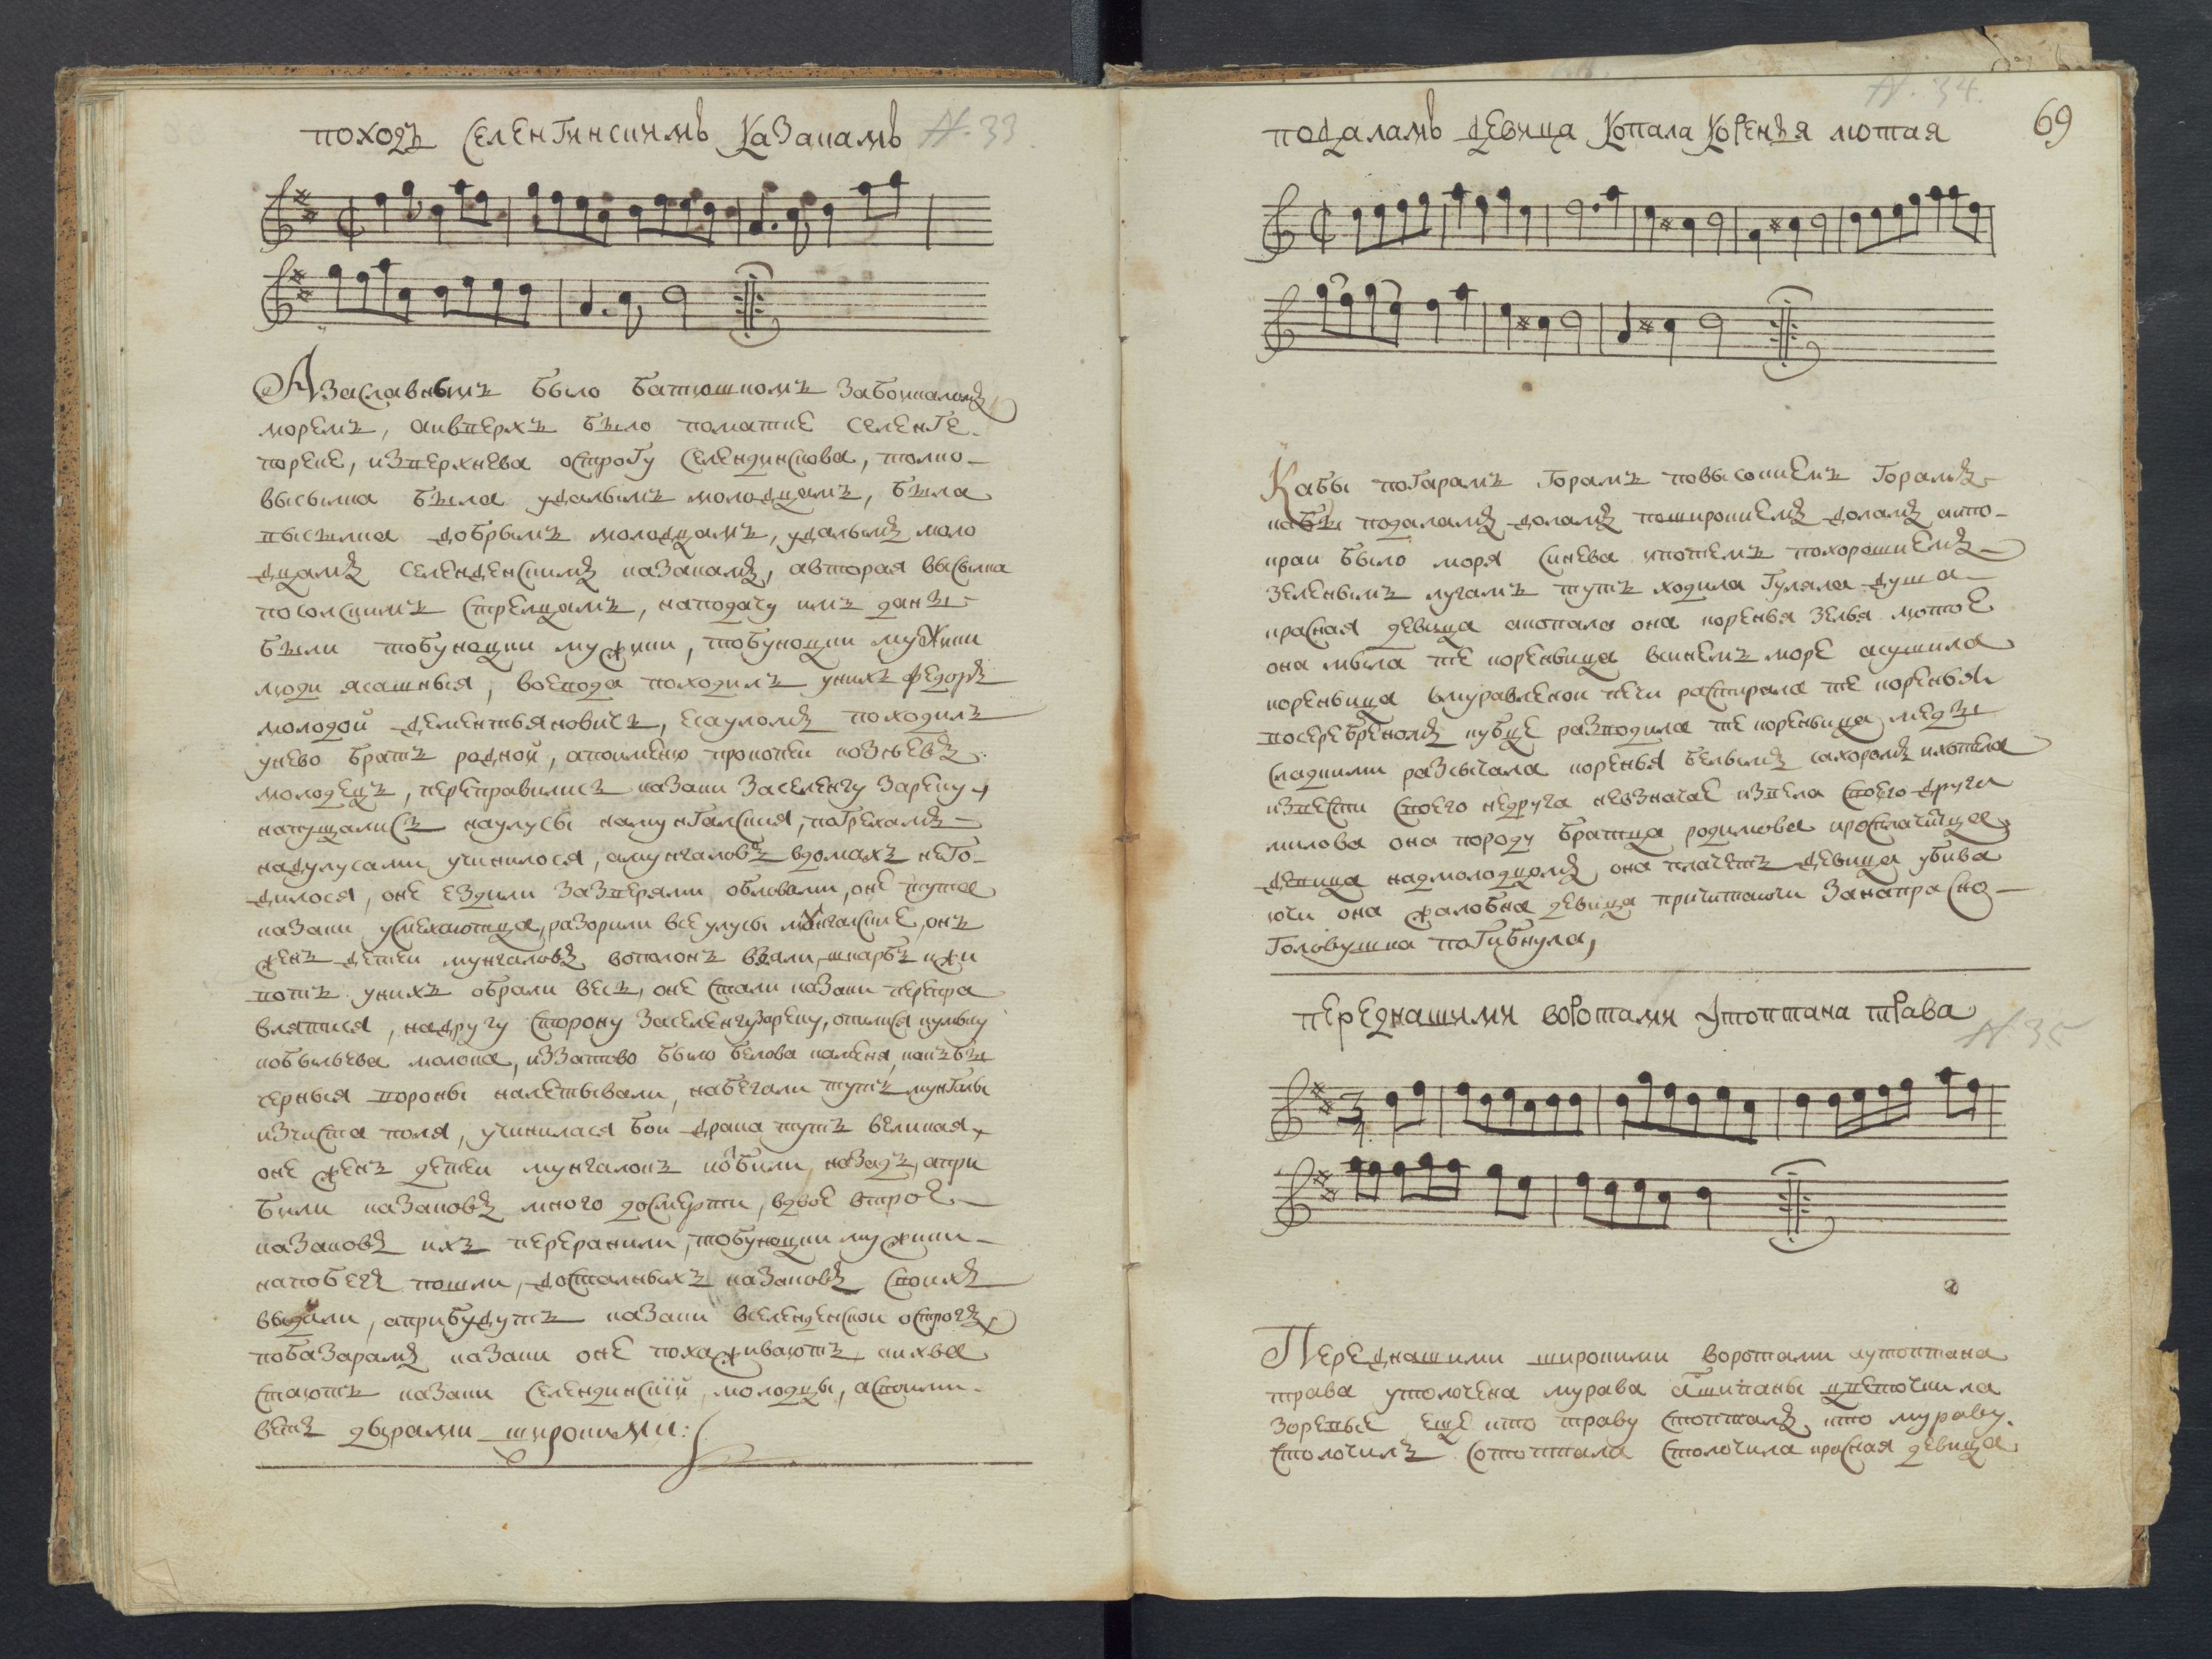 походъ селенгинскимъ казакамъ N. 33
А за славнымъ было батюшкомъ за боикаломъ
моремъ, а и вверхъ было по матке селенге
по реке, из верхнева острогу селендинскова, толко
высылка была удалымъ молодцамъ, была
высылка добрымъ молодцамъ, удалымъ моло
дцамъ селенденскимъ казакамъ, а вторая высылка
посолскимъ стрелцамъ, на подачу имъ даны
были тобуноцки мужики, тобуноцки мужики
люди ясашныя, воевода походилъ у нихъ федоръ
молодой дементьяновичь, есауломъ походилъ
у нево братъ родной, а по именю прокопеи козѣевъ
молодецъ, переправилисъ казаки за селенгу за реку
напущалисъ на улусы на мунгалския, по грехамъ
над улусами учинилося, а мунгаловъ в домахъ не го-
дилося, оне ездили за зверями обловами, оне тута
казаки усмехаютца, разорили все улусы мунгалские, онъ
женъ детеи мунгаловъ во полонъ взяли, шкарбъ и жи
вотъ у нихъ обрали весъ, оне стали казаки перепра
влятися, на другу сторону за селенгу реку, опилися кумысу
кобыльева молока, из за тово было белова каменя, какъ бы
черныя вороны налетывали, набегали тутъ мунгалы
из чиста поля, учинилася бои драка тутъ великая
оне женъ детеи мунгалокъ и отбили назадъ, а при
били казаковъ много до смерти, вдвое втрое
казаковъ ихъ переранили, тобуноцки мужики
на побегъ пошли, досталныхъ казаковъ своихъ
выдали, а прибудутъ казаки в селенденскои острогъ
по базарамъ казаки оне похаживаютъ, а и хва
стаютъ казаки селендинскии молодцы, а своими
ветъ дырами широкими:
N. 34. 69
по даламъ девица копала коренья лютая
Кабы по гарамъ горамъ по высокиемъ горамъ
кабы по даламъ доламъ по широкиемъ доламъ а и по
краи было моря синева и по темъ по хорошиемъ
зеленымъ лугамъ тутъ ходила гуляла душа
красная девица а копала она коренья зелья лютое
она мыла те кореньица в синемъ море а сушила
кореньица в муравленои печи растирала те коренья
во серебреномъ кубце разводила те кореньица меды
сладкими разсычала коренья белымъ сахоромъ и хотела
извести своего недруга невзначае извела своего друга
милова она по роду братца родимова и расплачитца
девица над молодцомъ она плачетъ девица убива
ючи она жалобна девица причитаючи занапрасно
головушка погибнула,
перед нашими воротами утоптана трава
N. 35
Перед нашими широкими воротами а утоптана
трава утолочена мурава а щипаны цветочики ла
зоревые еще кто траву стопталъ кто мураву
столочилъ сотоптала столочила красная девица